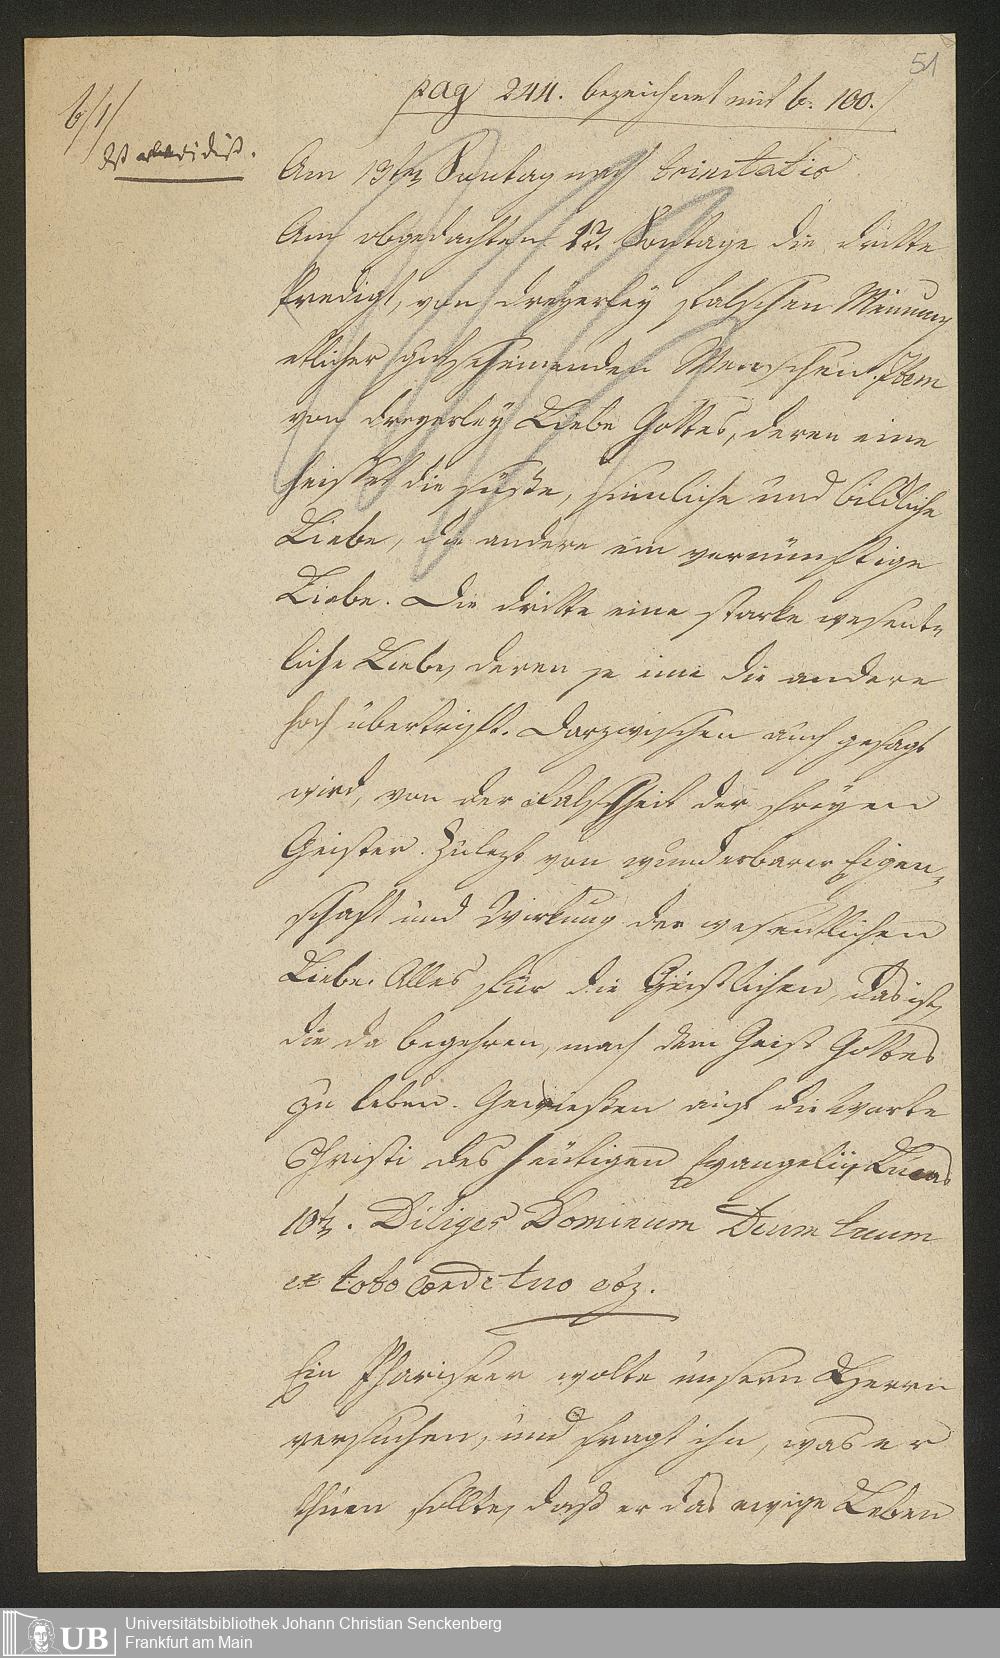 51
pag 244. bezeichnet mit b. 100.
b/1/
Am 13ten Sontag nach trinitatis
Am obgedachten 12. Sontage die dritte
Predigt, von dreyerley falschen Meinung
etlicher gutscheinenden Menschen. Item
von dreyerley Liebe Gottes, deren eine
heisset die süße, sinnliche und bildliche
Liebe, die andere ein vernünftige
Liebe. Die dritte eine starke wesent-
liche Liebe, deren je eine die andere
hoch übertrift. Darzwischen auch gesagt
wird, von der Falschheit der freyen
Geister. Zulezt von wunderbarer Eigen-
schaft und Wirkung der wesentlichen
Liebe. Alles für die Geistlichen, das ist,
die da begehren, nach dem Geist Gottes
zu leben. Gewiesen auf die Worte
Christi des heutigen Evangelii Lucas
10tn. Diliges Dominum Deum tuum
ex toto corde tuo etz.
Ein Phariseer wolte unsern Herrn
versuchen, und fragt ihn, was er
thuen sollte, daß er das ewige Leben
Universitätsbibliothek Johann Christian Senckenberg
Frankfurt am Main
UB